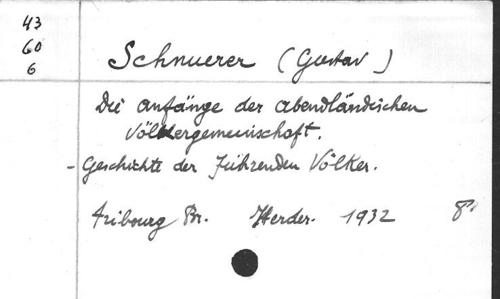 43
60
6
Schnuerer (Gustav)
Die anfänge der abendländischen
Völkergemeinschaft.
- Geschichte der Führenden Völker.
Fribourg Br. Herder. 1932 8°